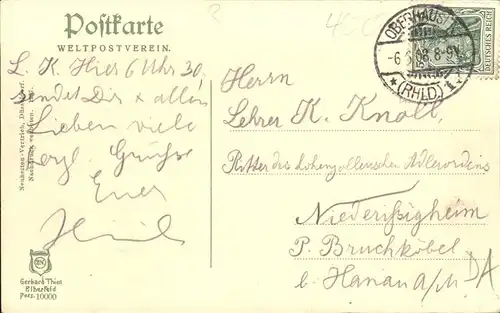 Postkarte
WELTPOSTVEREIN.
L. K. Hier 6 Uhr 30.
sendet Dir & allen
Lieben viele
Grüsse
Euer
Herrn
Lehrer K. Knoll,
Ritter des hohenzollerischen Adlerordens
Niederißigheim
P. Bruchköbel
b. Hanau a/M
DA
OBERHAUSEN
-6.
08.8-9V.
*(RHLD.) 1*
DEUTSCHES REICH
Neuheiten-Vertrieb, Düsseldorf.
Nachdruck verboten.
Gerhard Thien
Elberfeld
Porz. 10000